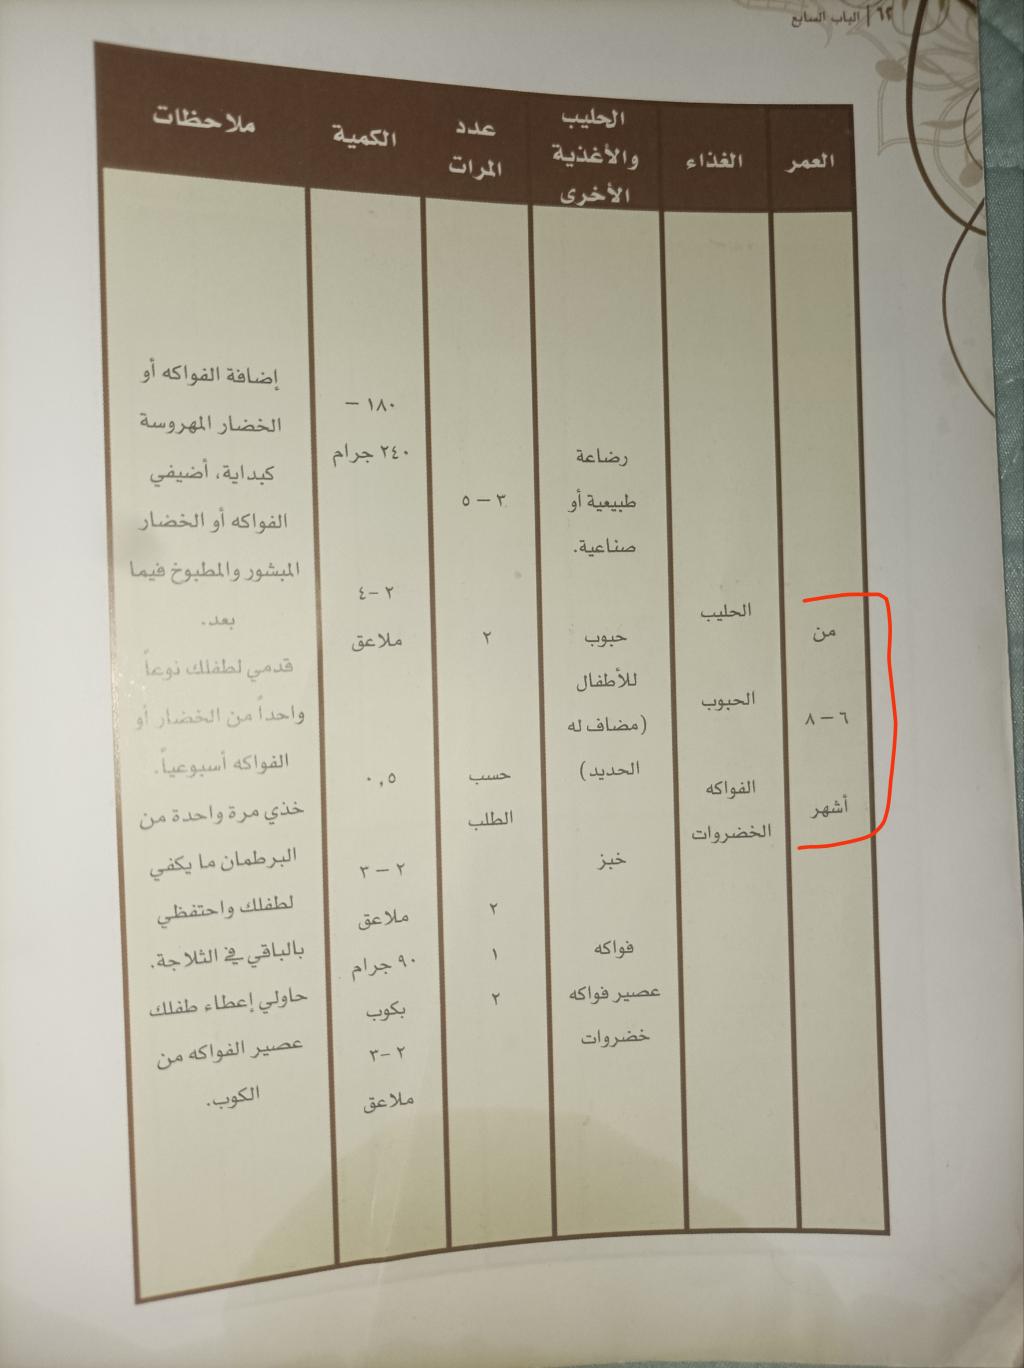 ٦٢ | الباب السابع
العمر
الغذاء
الحليب
والأغذية
الأخرى
عدد
المرات
الكمية
ملاحظات
من
٦ – ٨
أشهر
الحليب
الحبوب
الفواكه
الخضروات
رضاعة
طبيعية أو
صناعية.
حبوب
للأطفال
(مضاف له
الحديد)
خبز
فواكه
عصير فواكه
خضروات
٣ – ٥
٢
حسب
الطلب
٢
١
٢
١٨٠ –
٢٤٠ جرام
٢ –٤
ملاعق
٠,٥
٢ – ٣
ملاعق
٩٠ جرام
بكوب
٢ –٣
ملاعق
إضافة الفواكه أو
الخضار المهروسة
كبداية، أضيفي
الفواكه أو الخضار
المبشور والمطبوخ فيما
بعد.
قدمي لطفلك نوعاً
واحداً من الخضار أو
الفواكه أسبوعياً.
خذي مرة واحدة من
البرطمان ما يكفي
لطفلك واحتفظي
بالباقي في الثلاجة.
حاولي إعطاء طفلك
عصير الفواكه من
الكوب.